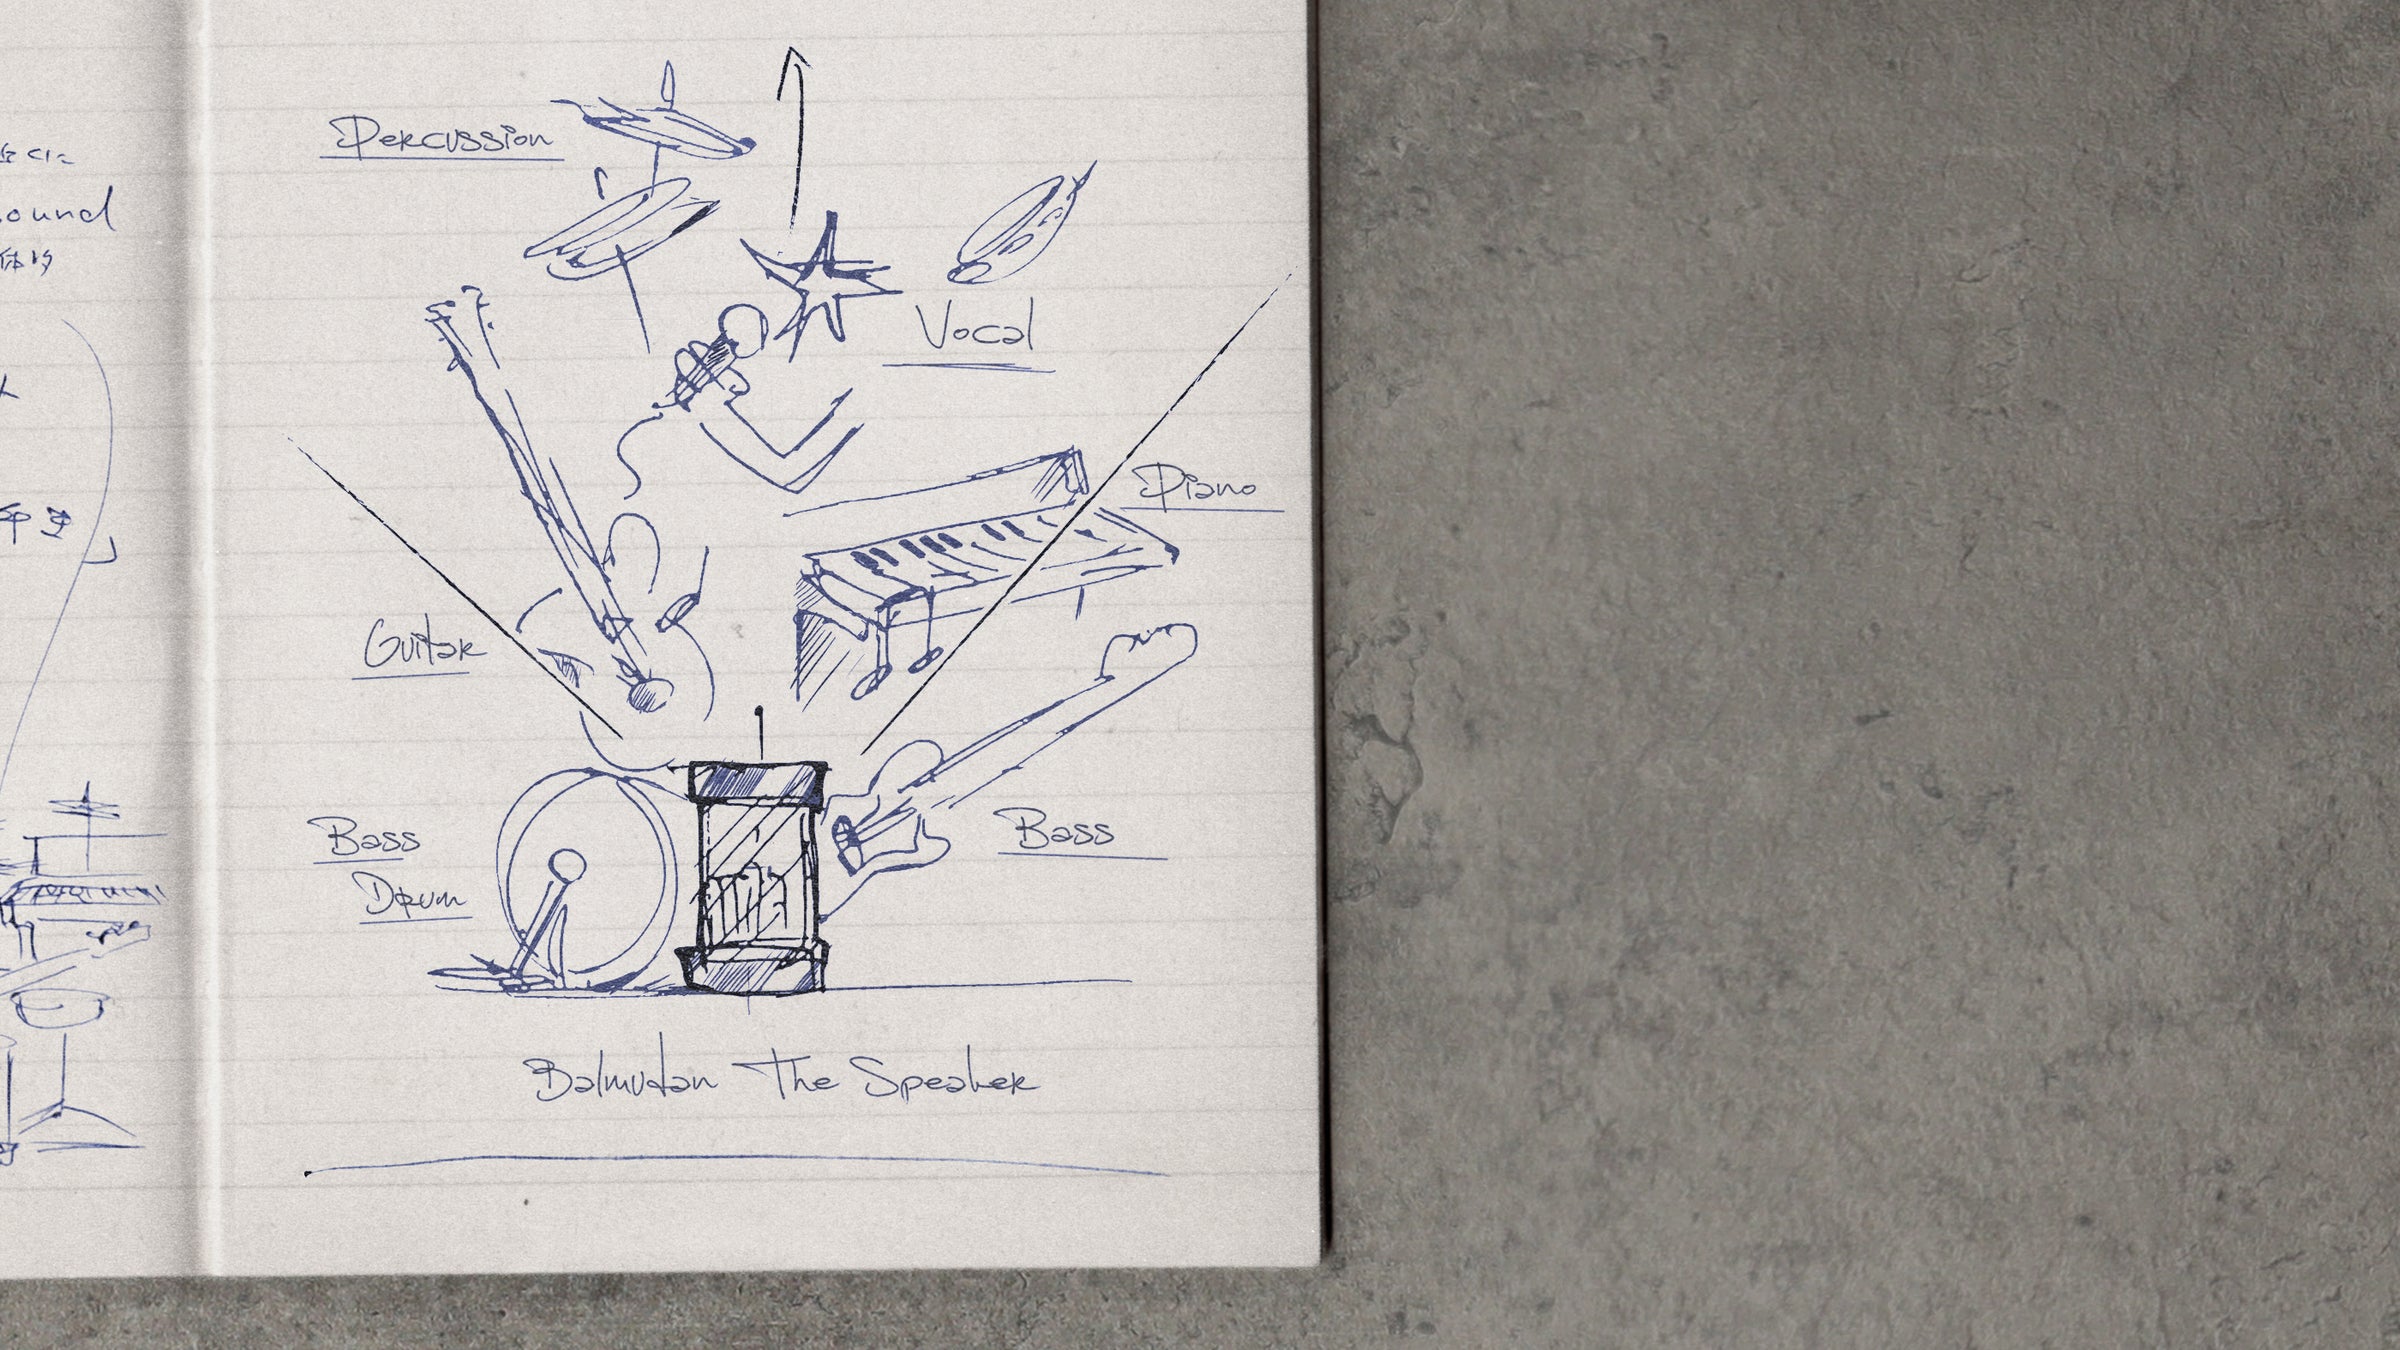 ound
Percussion
Vocal
Piano
Guitar
Bass
Drum
Bass
Balmudan The Speaker